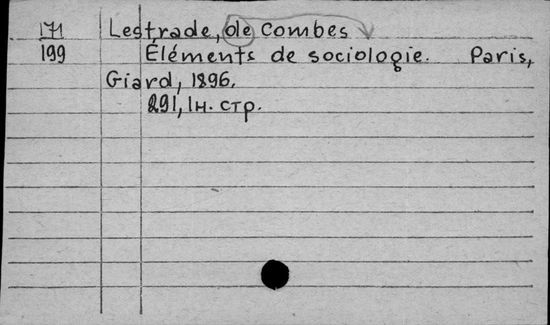 171 Lestrade, de Combes
199 Eléments de sociologie. Paris,
Giard, 1896.
291, 1 н. стр.